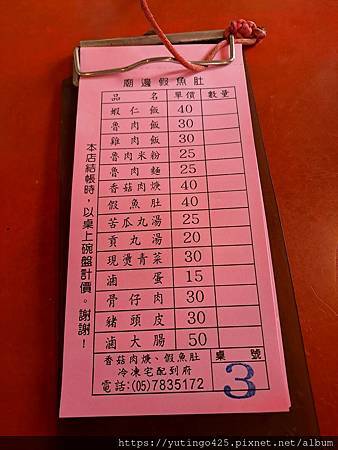 廟邊假魚肚
品名 單價 數量
蝦仁飯 40
魯肉飯 30
雞肉飯 30
魯肉米粉 25
魯肉麵 25
香菇肉焿 40
假魚肚 40
苦瓜丸湯 25
貢丸湯 20
現燙青菜 30
滷蛋 15
骨仔肉 30
豬頭皮 30
滷大腸 50
香菇肉焿、假魚肚
冷凍宅配到府
電話:(05)7835172
桌號
3
本店結帳時，以桌上碗盤計價。謝謝！
https://yutingo425.pixnet.net/album